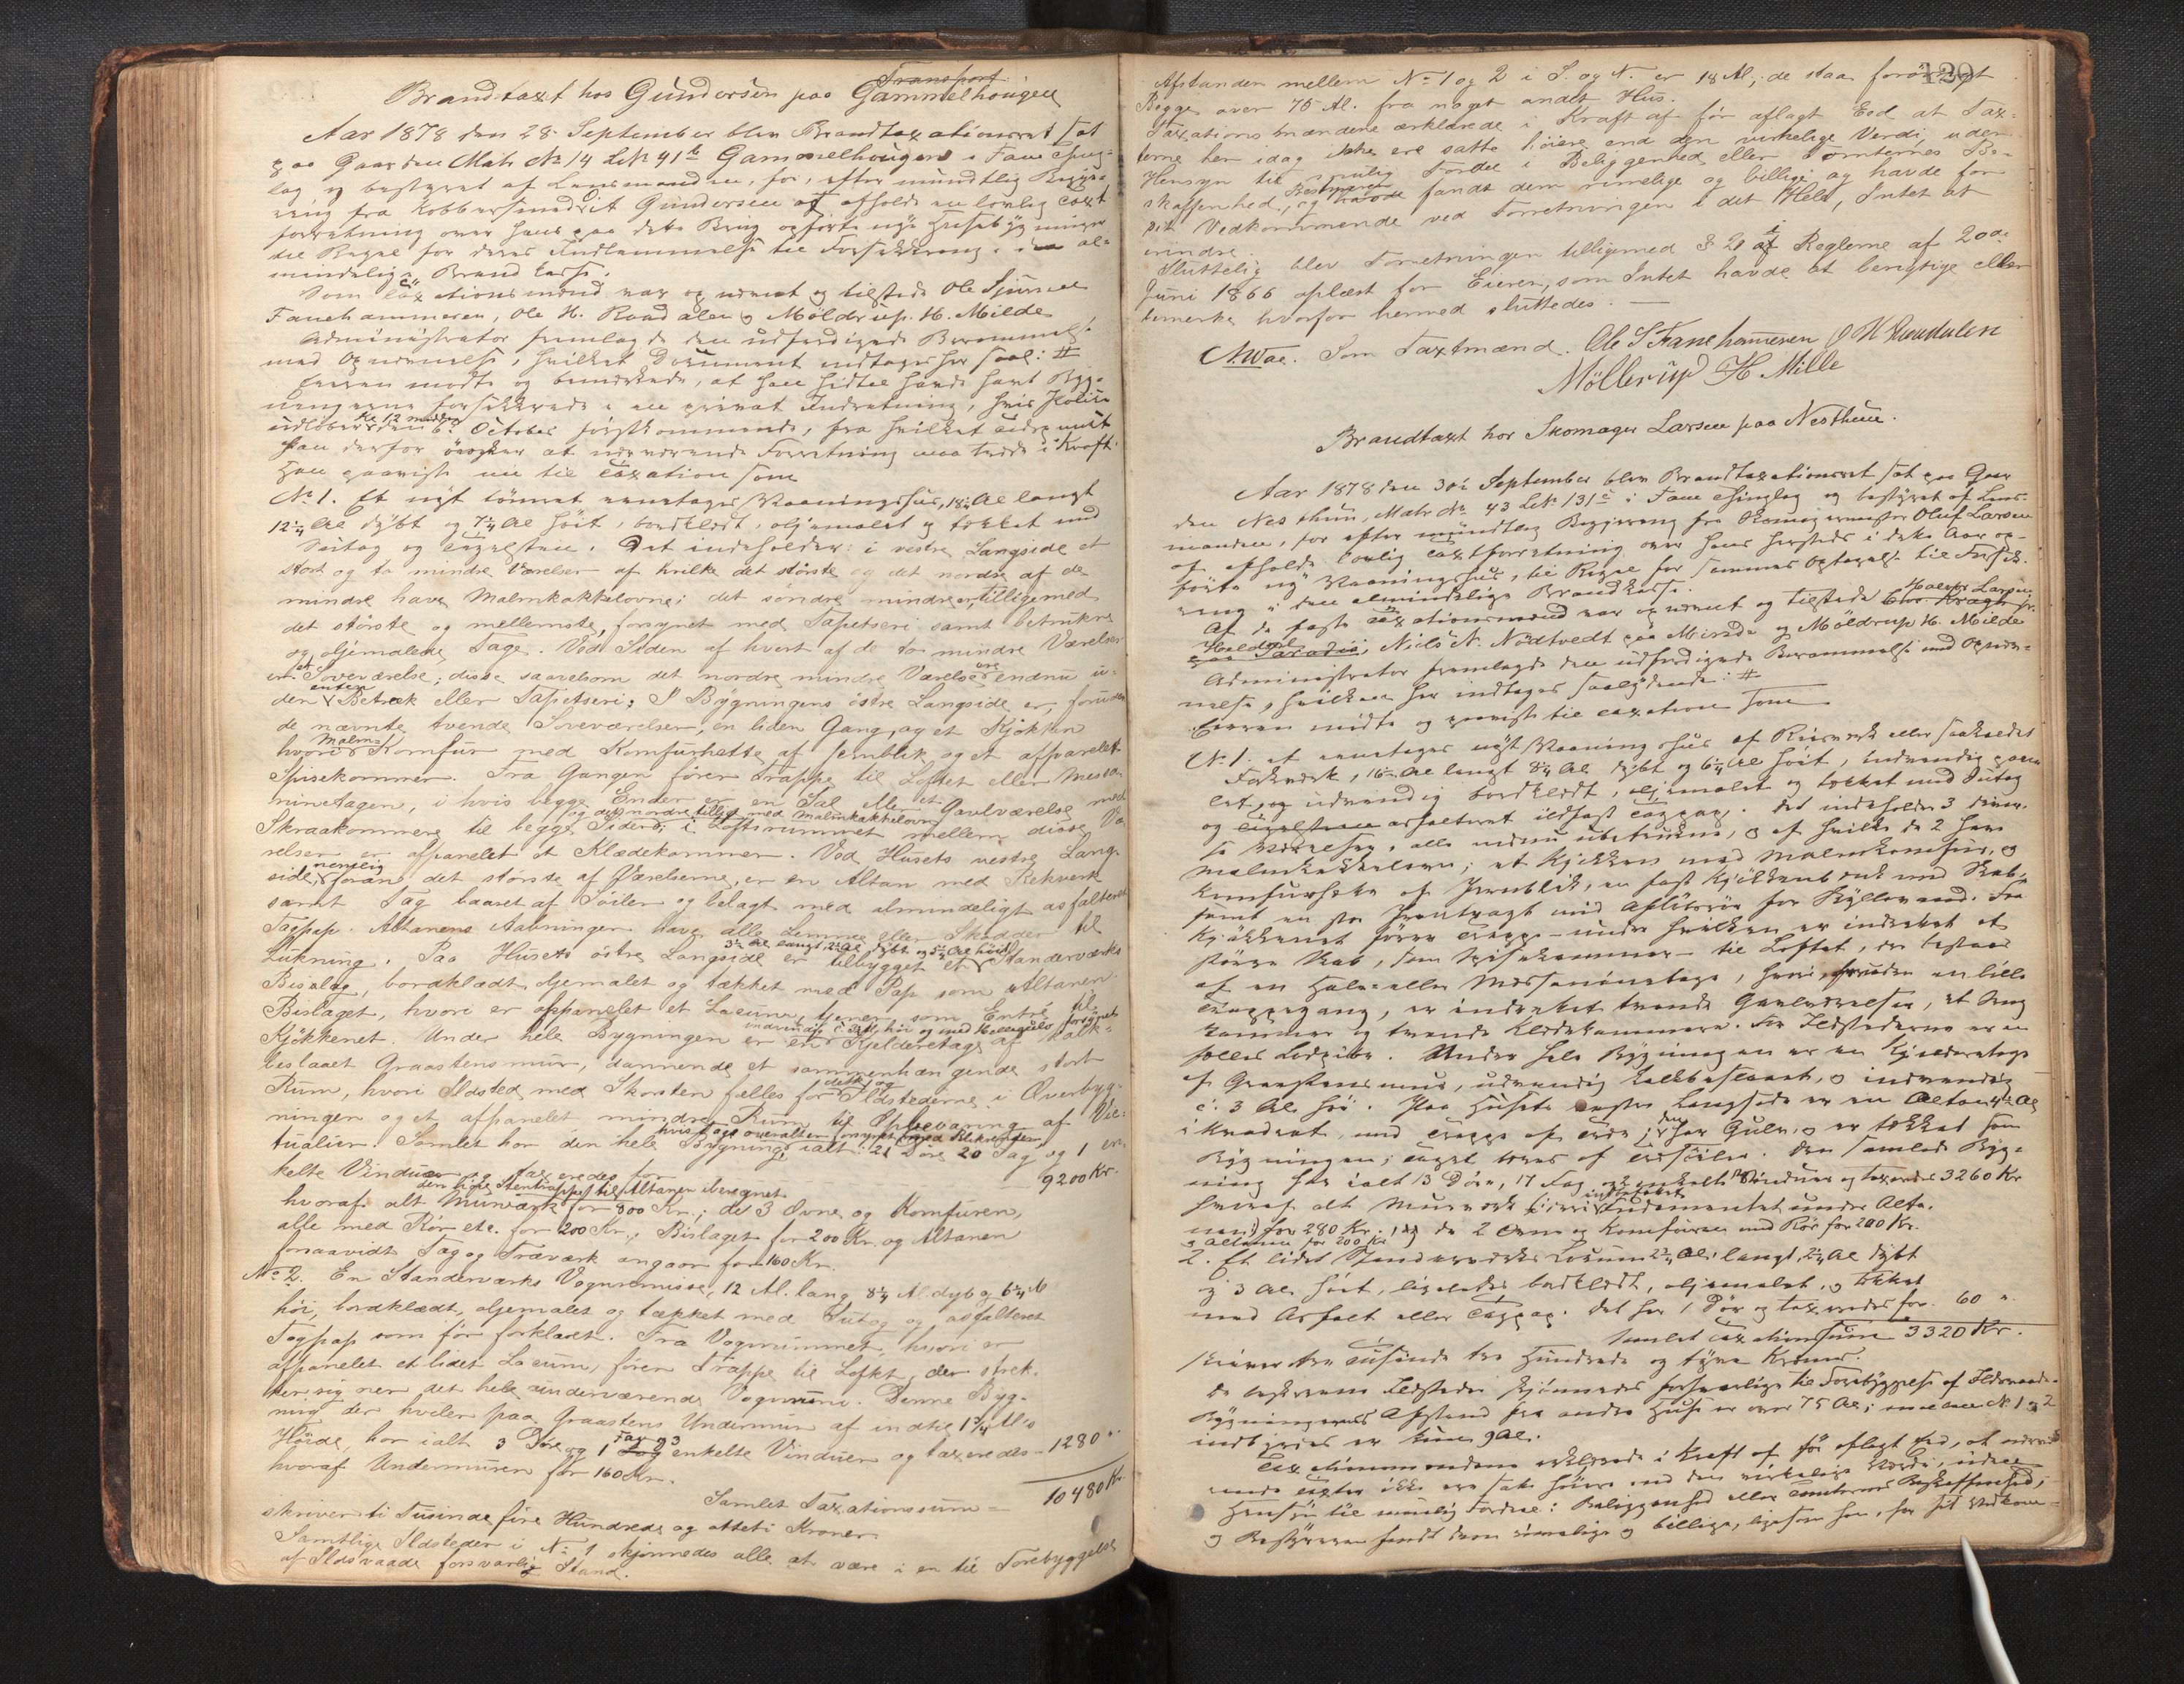 Transport
Brandtaxt hos Gundersen paa Gammelhougen
Aar 1878 den 28. September blev Brandtaxationsret sat
paa Gaarden Matr No 14 LNo 41b Gammelhougen i Fane Thing-
lag og bestyret af Lensmanden, for, efter mundtlig Begjæ-
ring fra Kobbersmed Gundersen at afholde en lovlig Taxt
forretning over hans paa dette Brug opførte nye Huusbygninger
til Brug for deres Indlemmelse til Forsikkring i den al-
mindelige Brandkasse.
Som Taxationsmænd var opnævnt og tilstede Ole Sjursen
Fanehammeren, Ole H. Raadalen og Møldrup H. Milde
Administrator fremlagde den udfærdigede Berammelse
med Opnævnelse, hvilket Dokument indtages her saal: #
Eieren mødte og bemærkede, at han hidtil havde havt Byg-
ningerne forsikkrede i en privat Indretning, hvis Police
Kl 12 middag
udløber den 6. October førstkommende, fra hvilket Tidspunkt
han derfor ønsker at nærværende Forretning maa træde i Kraft.
Han paaviste nu til Taxation som
No 1. Et nyt tømret eenetages Vaaningshus, 18 1/4 Al langt
12 1/4 Al dybt og 7 1/4 Al høit, bordklædt, oljemalet og tækket med
Sutag og Tagsteen. Det indeholder: i vestre Langside et
stort og to mindre Værelser af hvilke det største og det nordre af de
mindre have Malmkakkelovne; det søndre mindre er, tilligemed
det største og mellemste, forsynet med Tapetseri samt betrukne
og oljemalede Tage. Ved Siden af hvert af de to mindre Værelser
er et Soveværelse; disse saavelsom det nordre mindre Værelse ere endnu u-
den enten Betræk eller Tapetseri; I Bygningens østre Langside er, foruden
de nævnte tvende Soveværelser, en liden Gang, og et Kjøkken
hvori Malm-Komfur med Komfurhette af Jernblik og et afpanelet
Spisekammer. Fra Gangen fører Trappe til Loftet eller Messa-
ninetagen, i hvis begge Ender er en Sal eller et Gavlværelse med
(og det nordre tillige med Malmkakkelovn)
Skraakommere til begge Sider; i Loftsrummet mellem disse Væ-
relser er afpanelet et Klædekammer. Ved Husets vestre Lang-
side, nemlig foran det største af Værelserne, er en Altan med Rekverk
samt Tag baaret af Søiler og belagt med almindeligt asfalteret
Tagpap. Altanens Aabninger have alle Lemme eller Skodder til
3 1/2 Al langt 2 1/4 Al dybt og 5 1/4 Al høit
Lukning. Paa Husets østre Langside er tilbygget et Standerværks
Bislag, bordklædt, oljemalet og tækket med Pap som Altanen.
Bislaget, hvori er afpanelet et Locum, tjener som Entré til
Kjøkkenet. Under hele Bygningen er en Kjelderetage af Kalk-
beslaaet Graastensmur, dannende et sammenhængende stort
Rum, hvori Ildsted med Skorsten fælles for dette og Ildstederne i Overbyg-
ningen og et afpanelet mindre Rum til Opbevaring af Vic-
tualier. Samlet har den hele Bygning ialt: 21 Døre 20 Fag og 1 en-
kelte Vinduer og taxeredes for — 9200 Kr.
den hele Stentrappe til Altanen iberegnet
hvoraf alt Murværk for 800 Kr.; de 3 Ovne og Komfuren,
alle med Rør etc. for 200 Kr., Bislaget for 200 Kr. og Altanen
forsaavidt Tag og Træværk angaar for 160 Kr.
No 2. En Standerværks Vognremisse, 12 Al. lang 8 1/4 Al. dyb og 6 1/4 Al
høi, bordklædt, oljemalet og tækket med Sutag og asfalteret
Tagpap som før forklaret. Fra Vognrummet, hvori er
afpanelet et lidet Locum, fører Trappe til Loftet, der stræk-
ker sig over det hele underværende Vognrum. Denne Byg-
ning der hviler paa Graastens Undermur af indtil 1 3/4 Al's
Høide, har ialt 3 Døre og 1 Fag og 3 enkelte Vinduer og taxeredes — 1280 "
hvoraf Undermuren for 160 Kr.
Samlet Taxationssum = 10480 Kr.
skriver ti Tusinde fire Hundrede og otteti Kroner
Samtlige Ildsteder i No 1 skjønnedes alle at være i en til Forebyggelse
af Ildsvaade forsvarlig Stand.
129
Afstanden mellem No 1 og 2 i S. og N. er 18 Al.; de staa forøvrigt
Begge over 75 Al. fra noget andet Hus.
Taxationsmændene erklærede i Kraft af før aflagt Eed at Tax-
terne her idag ikke ere satte høiere end den virkelige Verdi, uden
Hensyn til mulig Fordel i Beliggenhed eller Tomternes Be-
skaffenhed, og Bestyreren fandt dem rimelige og billige og havde for
sit Vedkommende ved Forretningen i det Hele, Intet at
erindre.
Sluttelig blev Forretningen tilligemed § 21 i Reglerne af 20de
Juni 1866 oplæst for Eieren, som Intet havde at berigtige eller
bemerke hvorfor hermed sluttedes. —
Som Taxtmænd. Ole S Fanehammeren O H Raadalen
Møllerup H. Mille
Brandtaxt hos Skomager Larsen paa Nesthun.
Aar 1878 den 30te September blev Brandtaxationsret sat paa Gaar
den Nesthun, Matr No 43 LNo 131c i Fane Thinglag og bestyret af Lens-
manden, for efter mundtlig Begjæring fra Skomagermester Oluf Larsen
at afholde lovlig Taxtforretning over hans hersteds i dette Aar op-
førte nye Vaaningshus, til Brug for sammes Optagelse til Forsik-
ring i den almindelige Brandkasse.
Af de faste Taxationsmænd var opnævnt og tilstede Halvor Larsen
Nils N. Nødtvedt paa Mi[n]de og Møldrup H. Milde
Administrator fremlagde den udfærdigede Berammelse med Opnæv-
nelse, hvilken her indtages saalydende: #
Eieren mødte og paaviste til Taxation som
No 1. et eenetages nyt Vaaningshus af Reisværk eller saakaldet
Fakværk, 16 1/2 Al langt 8 1/4 Al dybt og 6 1/4 Al høit, indvendig pane-
let, og udvendig bordklædt, oljemalet og tækket med Sutag
og asfalteret ildfast Tagpap. Det indeholder 3
Værelser, alle endnu ubetrukne, og af hvilke de 2 have
Malmkakkelovn; et Kjøkken med Malmkomfur, og
Komfurhette af Jernblik, en fast Kjøkkenbænk med Skab,
samt en stor med Afløbsrør for Skyllevand. Fra
Kjøkkenet fører Trappe – under hvilken er indrettet et
større Skab, som Spisekammer – til Loftet, der bestaar
af en Halv- eller Messaninetage, hvori, foruden en lille
Trappegang, er indrettet tvende Gavlværelser, et Seng-
kammer og tvende Klædekammere. For Ildstederne er en
fælles Ledpibe. Under hele Bygningen er en Kjelderetage
af Graastensmur, udvendig kalkbeslaaet, og indvendig
c: 3 Al. høi. Paa Husets vestre Langside er en Altan 4 1/2 Al
i Kvadrat, med Trappe af Træ; den har Gulv, og er tækket som
Bygningen; Taget bæres af Træsøiler. Den samlede Byg-
ning har ialt 13 Døre, 17 Fag og 2 enkelte Vinduer og taxeredes 3260 Kr
hvoraf alt Murværk (heri indbefattet Fundamentet under Alta-
nen) for 280 Kr., de 2 Ovne og Komfuren med Rør for 200 Kr.
og Altanen for 200 Kr
2. Et lidet Standerværks Locum 2 3/4 Al. langt, 2 1/4 Al dybt
og 3 Al. høit, ligeledes bordklædt, oljemalet, og tækket
med Asfalt eller Tagpap. Det har 1 Dør og taxeredes for 60 ".
Samlet Taxationssum 3320 Kr.
skriver tre Tusinde tre Hundrede og tyve Kroner.
De beskrevne Ildsteder skjønnedes forsvarlige til Forebyggelse af Ildsvaade.
Bygningernes Afstand fra andre Huse er over 75 Al; mellem No 1 og 2
indbyrdes er kun 9 Al.
Taxationsmændene erklærede i Kraft af før aflagt Eed, at nærvæ-
rende Taxter ikke ere satte høiere end den virkelige Værdi, uden
Hensyn til mulig Fordeel i Beliggenhed eller Tomternes Beskaffenhed,
og Bestyreren fandt dem rimelige og billige, ligesom han, for sit Vedkom-